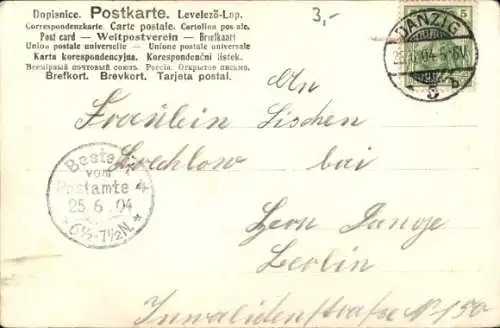 Dopisnice. Postkarte. Levelező-Lap.
Correspondenzkarte. Carte postale. Cartolina postale.
Post card — Weltpostverein — Brefkaart
Union postale universelle — Unione postale universale
Karta korespondencyjna. Korespondenční lístek.
Всемірный почтовый союз. Россія. Открытое письмо.
Brefkort. Brevkort. Tarjeta postal.
3,-
5
DANZIG
6.04. 5-6N.
An
Fräulein Lischen
Strechlow bei
Herrn Lange
Berlin
Invalidenstraße No 150
Bestellt
vom
Postamte 4
25 6 04
6½-7½N.